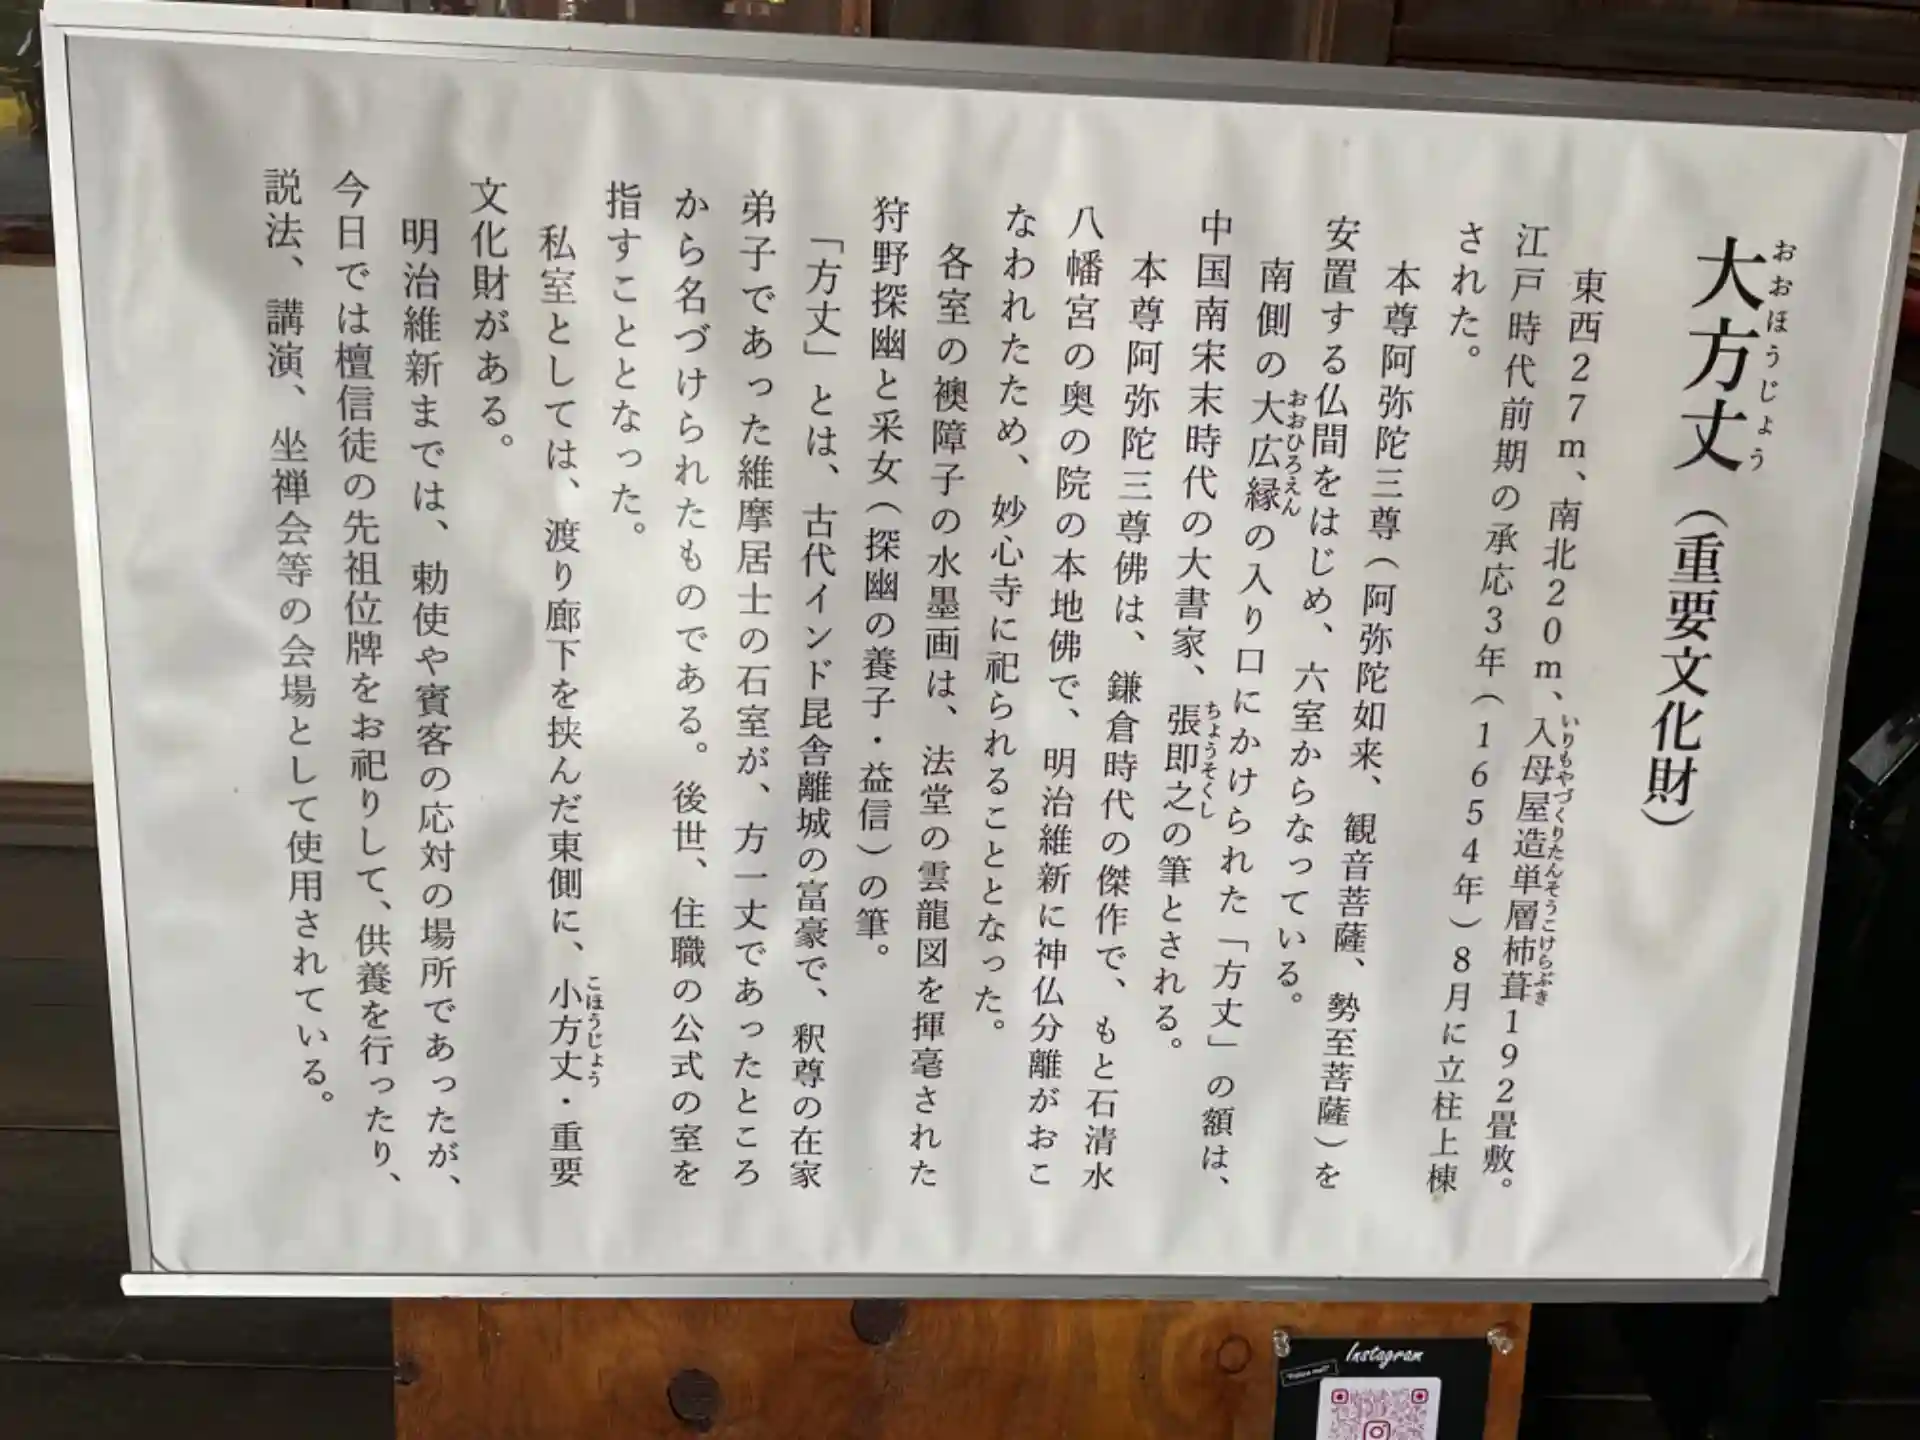 大方丈（重要文化財）
おおほうじょう
東西２７ｍ、南北２０ｍ、入母屋造単層柿葺１９２畳敷。
いりもやづくりたんそうこけらぶき
江戸時代前期の承応３年（１６５４年）８月に立柱上棟
された。
本尊阿弥陀三尊（阿弥陀如来、観音菩薩、勢至菩薩）を
安置する仏間をはじめ、六室からなっている。
南側の大広縁の入り口にかけられた「方丈」の額は、
おおひろえん
中国南宋末時代の大書家、張即之の筆とされる。
ちょうそくし
本尊阿弥陀三尊佛は、鎌倉時代の傑作で、もと石清水
八幡宮の奥の院の本地佛で、明治維新に神仏分離がおこ
なわれたため、妙心寺に祀られることとなった。
各室の襖障子の水墨画は、法堂の雲龍図を揮毫された
狩野探幽と采女（探幽の養子・益信）の筆。
「方丈」とは、古代インド昆舎離城の富豪で、釈尊の在家
弟子であった維摩居士の石室が、方一丈であったところ
から名づけられたものである。後世、住職の公式の室を
指すこととなった。
私室としては、渡り廊下を挟んだ東側に、小方丈・重要
こほうじょう
文化財がある。
明治維新までは、勅使や賓客の応対の場所であったが、
今日では檀信徒の先祖位牌をお祀りして、供養を行ったり、
説法、講演、坐禅会等の会場として使用されている。
Instagram